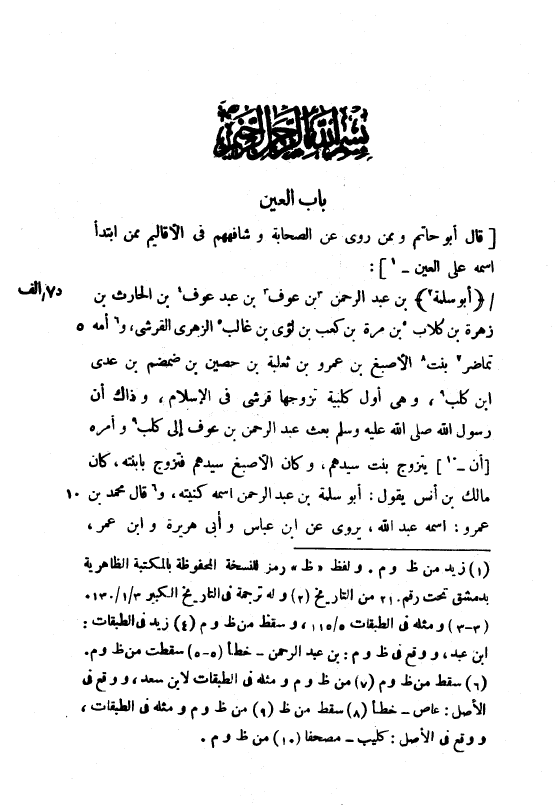 بسم الله الرحمن الرحيم
باب العين
[ قال أبو حاتم و ممن روى عن الصحابة و شافههم فى الأقاليم ممن ابتدأ
اسمه على العين - ١ ] :
/ ﴿ أبو سلمة٢ ﴾ بن عبد الرحمن ٣بن عوف٣ بن عبد عوف٤ بن الحارث بن د٧/الف
زهرة بن كلاب ٥بن مرة بن كعب بن لؤى بن غالب٥ الزهرى القرشى، و٦ أمه ٥
تماضر٧ بنت٨ الأصبغ بن عمرو بن ثعلبة بن حصين بن ضمضم بن عدى
ابن كلب٩ ، و هى أول كلبية تزوجها قرشى فى الإسلام ، و ذاك أن
رسول الله صلى الله عليه وسلم بعث عبد الرحمن بن عوف إلى كلب٩ و أمره
[أن - ١٠ ] يتزوج بنت سيدهم ، و كان الأصبغ سيدهم فتزوج بابنته ، كان
مالك بن أنس يقول : أبو سلمة بن عبد الرحمن اسمه كنيته ، و٦ قال محمد بن ١٠
عمرو : اسمه عبد الله ، يروى عن ابن عباس و أبى هريرة و ابن عمر ،
(١) زيد من ظ و م . و لفظ « ظ » رمز للنسخة المحفوظة بالمكتبة الظاهرية
بدمشق تحت رقم ٢١٠ من التاريخ (٢) و له ترجمة فى التاريخ الكبير ١٣٠/١/٣ .
(٣-٣) و مثله فى الطبقات ١١٥/٥ ، و سقط من ظ و م (٤) زيد فى الطبقات :
ابن عبد ، و وقع فى ظ و م : بن عبد الرحمن - خطأ (٥-٥) سقطت من ظ و م .
(٦) سقط من ظ و م (٧) من ظ و م و مثله فى الطبقات لابن سعد ، و وقع فى
الأصل : عاص - خطأ (٨) سقط من ظ (٩) من ظ و م و مثله فى الطبقات ،
و وقع فى الأصل : كليب - مصحفا (١٠) من ظ و م .